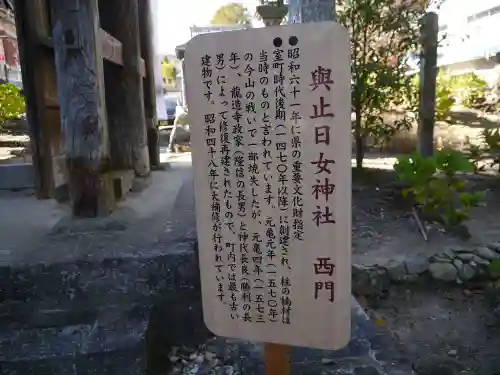 與止日女神社　西門
●昭和六十一年に県の重要文化財指定
●室町時代後期（一四七〇年以降）に創建され、柱の輪材は
当時のものと言われています。元亀元年（一五七〇年）
の今山の戦いで一部焼失したが、元亀四年（一五七三
年）、龍造寺政家（隆信の長男）と神代長良（勝利の長
男）によって修復再建されたもので、町内では最も古い
建物です。昭和四十八年に大補修が行われています。